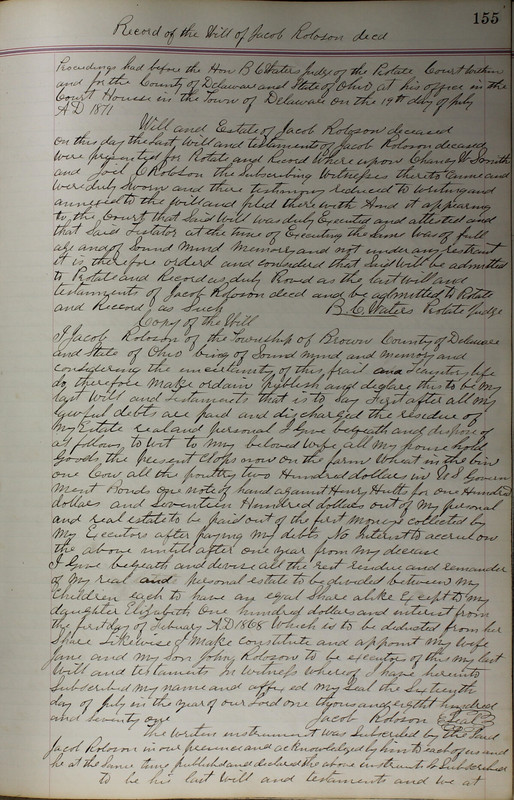 155
Record of the Will of Jacob Robson decd
Proceedings had before the Hon B C Waters Judge of the Probate Court within
and for the County of Delaware and State of Ohio at his office in the
Court House in the Town of Delaware on the 19th day of July
AD 1871
Will and Estate of Jacob Robson deceased
on this day the Last Will and testament of Jacob Robson deceased
were presented for Probate and Record Where upon Chancy W Smith
and Joel C Robson the Subscribing Witnesses thereto came and
were duly Sworn and there testimony reduced to writing and
annexed to the Will and filed there with And it appearing
to the Court that Said Will was duly Executed and attested and
that Said Testator at the time of Executing the Same was of full
age and of Sound Mind Memory and not under any restraint
it is therefore orderd and considerd that Said Will be admitted
to Probate and Record as duly Proved as the last Will and
testament of Jacob Robson decd and be admitted to Probate
and Record as Such B. C. Waters Probate Judge
Copy of the Will
I Jacob Robson of the Township of Brown County of Delaware
and State of Ohio being of Sound mind and memory and
considering the uncertainty of this frail and life
do therefore make ordain publish and declare this to be my
last Will and testament that is to Say First after all my
lawful debts are paid and discharged the residue of
my Estate real and personal I give beqeath and dispose of
as follows to Wit to My beloved Wife all my house hold
Goods the present Crops now on the farm Wheat in the bin
one Cow all the poultry two Hundred dollars in U S Govern
ment Bonds one note of hand against Henry for one Hundred
dollars and Seventeen Hundred dollars out of my personal
and real estate to be paid out of the first moneys collected by
my Executors after paying my debts No Interest to accrue on
the above untill after one year from my decease
I Give beqeath and devise all the rest residue and remainder
of my real and personal estate to be divided between my
children each to have an eqal Share alike Except to my
daughter Elizabeth One hundred dollars and interest from
the first day of February AD 1868 Which is to be deducted from her
Share Likewise I Make constitute and appoint my wife
Jane and my Son John Robson to be executor of this my last
Will and testament In Witness whereof I have hereunto
Subscribed my name and affixed my Seal the
day of July in the year of our Lord one thousand eight hundred
and Seventy one Jacob Robson Seal
The writen instrument was Subscribed by the Said
Jacob Robson in our presence and acknowledged by him to each of us and
he at the Same time published and declared the above instrument So Subscribed
to be his last Will and testament and we at